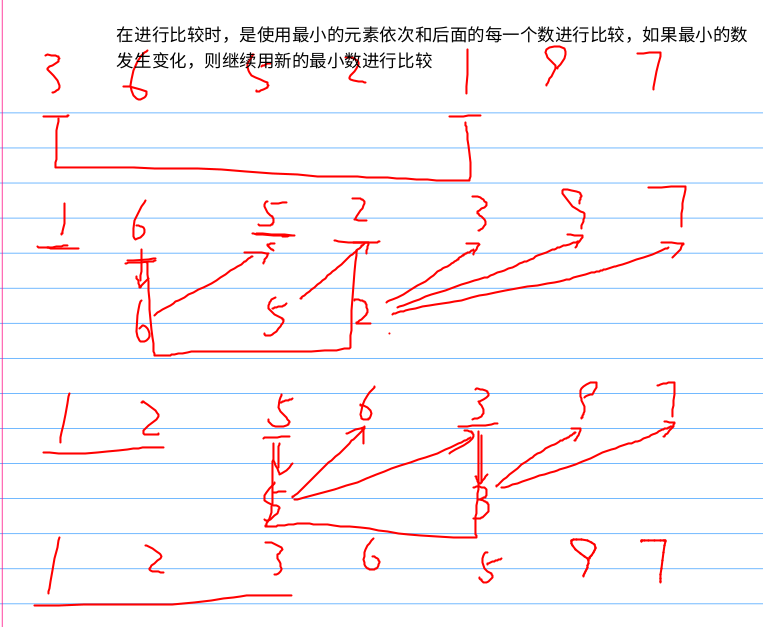 在进行比较时，是使用最小的元素依次和后面的每一个数进行比较，如果最小的数
发生变化，则继续用新的最小数进行比较
3 6 5 2 1 9 7
1 6 5 2 3 9 7
6 5 2
1 2 5 6 3 9 7
5 3
1 2 3 6 5 9 7